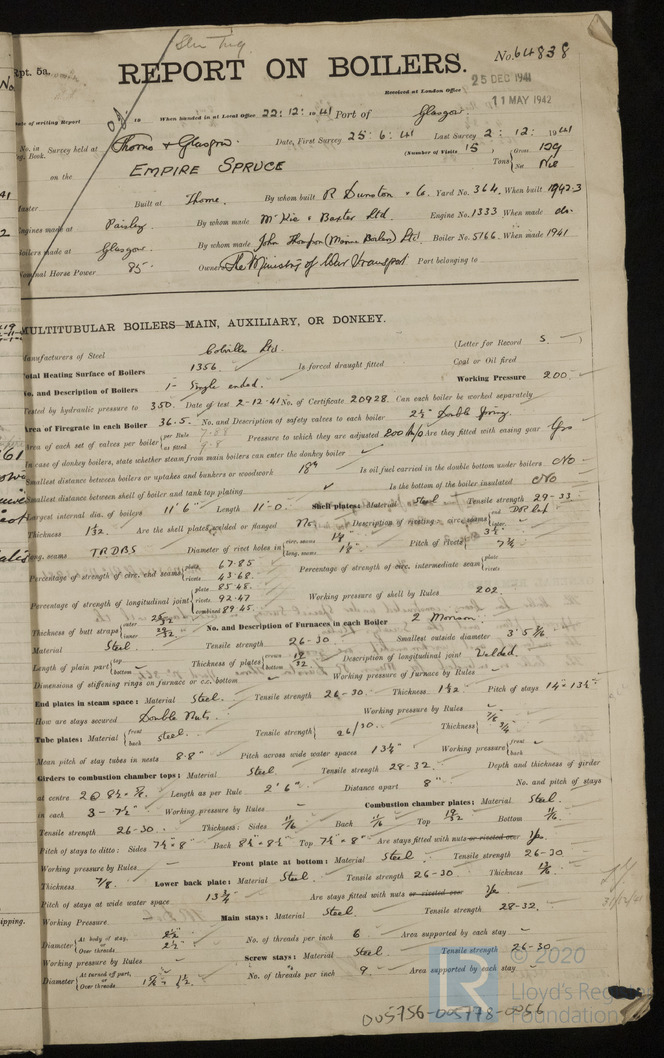 Rpt. 5a.
REPORT ON BOILERS.
No. 64838
25 DEC 1941
Received at London Office
11 MAY 1942
Date of writing Report 19 When handed in at Local Office 22:12:1941 Port of Glasgow
No. in Reg. Book. Survey held at Thorne & Glasgow Date, First Survey 25:6:41 Last Survey 2:12:1941
on the EMPIRE SPRUCE (Number of Visits 15) Tons Gross 129 Net
Master Built at Thorne. By whom built R Dunston & Co. Yard No. 364. When built 1942-3
Engines made at Paisley. By whom made McKie & Baxter Ltd. Engine No. 1333 When made do.
Boilers made at Glasgow By whom made John Thompson (Marine Boilers) Ltd. Boiler No. 5166 When made 1941
Nominal Horse Power 85. Owners The Ministry of War Transport Port belonging to
MULTITUBULAR BOILERS—MAIN, AUXILIARY, OR DONKEY.
Manufacturers of Steel Colvilles Ltd. (Letter for Record S.
Total Heating Surface of Boilers 1356. Is forced draught fitted Coal or Oil fired
No. and Description of Boilers 1- Single ended. Working Pressure 200.
Tested by hydraulic pressure to 350. Date of test 2-12-41 No. of Certificate 20928. Can each boiler be worked separately
Area of Firegrate in each Boiler 36.5. No. and Description of safety valves to each boiler 2½" Double Spring.
Area of each set of valves per boiler per Rule 7.88 as fitted 9.8 Pressure to which they are adjusted 200 Are they fitted with easing gear Yes
In case of donkey boilers, state whether steam from main boilers can enter the donkey boiler
Smallest distance between boilers or uptakes and bunkers or woodwork 18" Is oil fuel carried in the double bottom under boilers No
Smallest distance between shell of boiler and tank top plating Is the bottom of the boiler insulated No
Largest internal dia. of boilers 11' 6" Length 11'-0" Shell plates: Material Steel Tensile strength 29-33
Thickness 1 1/32. Are the shell plates welded or flanged No. Description of riveting: circ. seams end DR Lap inter.
long. seams TRDBS Diameter of rivet holes in circ. seams long. seams Pitch of rivets
Percentage of strength of circ. end seams plate 67.85 rivets 43.68 Percentage of strength of circ. intermediate seam plate rivets
Percentage of strength of longitudinal joint plate 85.45. rivets 92.47 combined 89.45. Working pressure of shell by Rules 202.
Thickness of butt straps outer inner No. and Description of Furnaces in each Boiler 2 Morison.
Material Steel. Tensile strength 26-30 Smallest outside diameter 3' 5
Length of plain part top bottom Thickness of plates crown bottom Description of longitudinal joint Welded.
Dimensions of stiffening rings on furnace or c.c. bottom Working pressure of furnace by Rules
End plates in steam space: Material Steel. Tensile strength 26-30 Thickness 1 1/32 Pitch of stays 14" 13½"
How are stays secured Double Nuts. Working pressure by Rules
Tube plates: Material front back steel. Tensile strength 26/30 Thickness 7/8 3/4
Mean pitch of stay tubes in nests 8.8" Pitch across wide water spaces 13½" Working pressure front back
Girders to combustion chamber tops: Material Steel. Tensile strength 28-32. Depth and thickness of girder
at centre 2@ 8½" Length as per Rule 2' 6" Distance apart 8" No. and pitch of stays
in each 3 - 7½" Working pressure by Rules Combustion chamber plates: Material Steel.
Tensile strength 26-30 Thickness: Sides 11/16 Back 11/16 Top 19/32 Bottom 11/16
Pitch of stays to ditto: Sides 7½" × 8" Back 8½" × 8½" Top 7½" × 8" Are stays fitted with nuts or riveted over Yes.
Working pressure by Rules Front plate at bottom: Material Steel. Tensile strength 26-30
Thickness 7/8. Lower back plate: Material Steel Tensile strength 26-30 Thickness
Pitch of stays at wide water space 13¾" Are stays fitted with nuts or riveted over Yes
Working Pressure Main stays: Material Steel Tensile strength 28-32.
Diameter At body of stay, or Over threads 2½" 2½" No. of threads per inch 6 Area supported by each stay
Working pressure by Rules Screw stays: Material Steel. Tensile strength 26-30
Diameter At turned off part, or Over threads No. of threads per inch 9. Area supported by each stay
31/12/41
© 2020
Lloyd's Register
Foundation
005756-005778-0056